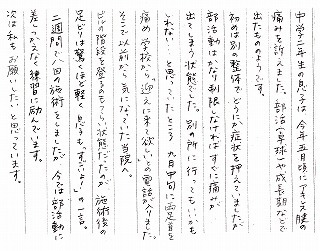 中学二年生の息子は今年五月頃にアキレス腱の
痛みを訴えました。部活(卓球)や成長期などで
出たもののようです。
初めは別の整体でどうにか症状を押えていましたが
部活動はかなり制限しなければすぐに痛みが
出てしまう状態でした。別の所に行ってもいいかも
しれない…と思っていたところ、九月中旬に両足首を
痛め、学校から「迎えに来て欲しい」との電話が入りました。
そこで以前から気になっていた当院へ。
ビルの階段を登るのもつらい状態だったのが施術後の
足どりは驚くほど軽く、息子も「すごいよ!」の一言。
二週間で、回の施術をしましたが、今では部活動に
差しつかえなく練習に励んでいます。
次は私もお願いしたいと思っています。